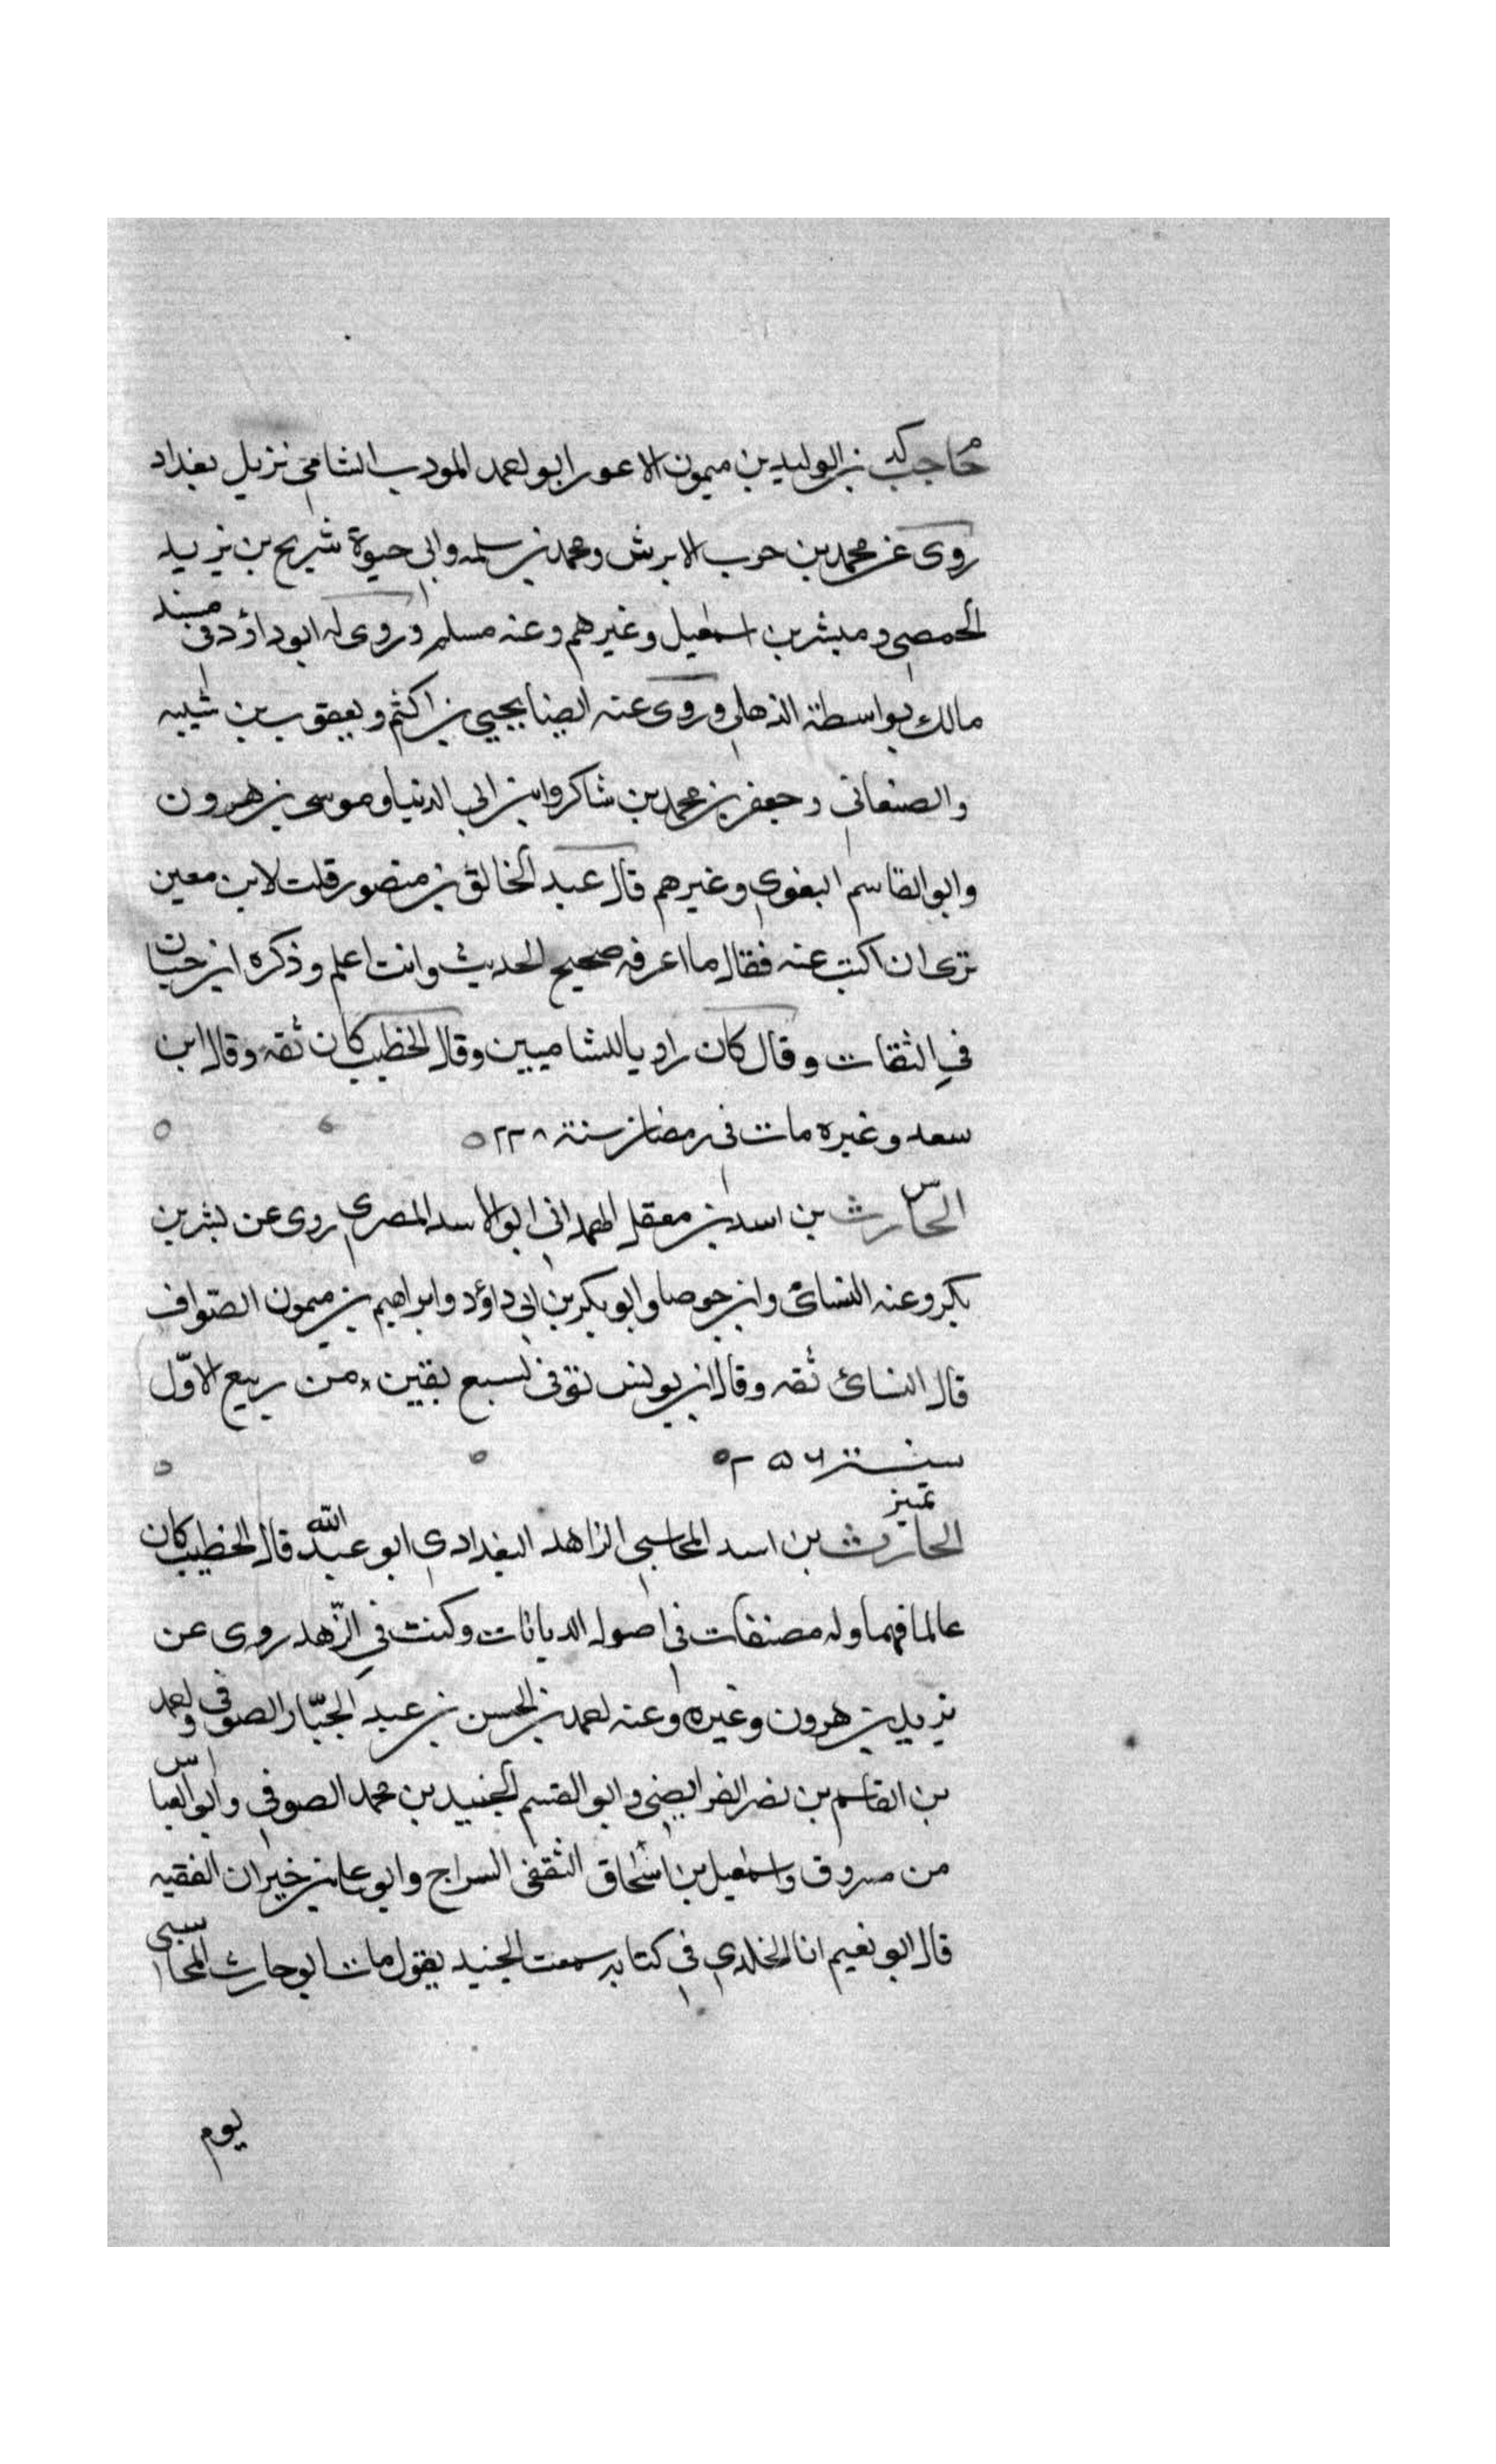 حاجب بن الوليد بن ميمون الاعور ابو احمد المودب الشامي نزيل بغداد
روى عن محمد بن حرب الابرش ومحمد بن سلمه وابي حيوة شريح بن يزيد
الحمصي ومبشر بن اسمعيل وغيرهم وعنه مسلم وروى له ابو داؤد في مسند
مالك بواسطة الذهلي وروى عنه ايضا يحيي بن اكثم ويعقوب بن شيبه
والصنعاني وجعفر بن محمد بن شاكر وابن ابي الدنيا وموسى بن هرون
وابو القاسم البغوي وغيرهم قال عبد الخالق بن منصور قلت لابن معين
ترى ان اكتب عنه فقال ما اعرفه صحيح الحديث وانت اعلم وذكره ابن حبان
في الثقات وقال كان راويا للشاميين وقال الخطيب كان ثقه وقال ابن
سعد وغيره مات في رمضان سنة ٢٢٨
س
الحارث بن اسد بن معقل الهمداني ابو الاسد المصري روى عن بشر بن
بكر وعنه النسائ وابن جوصا وابو بكر بن ابي داؤد وابراهيم بن ميمون الصواف
قال النسائ ثقه وقال ابن يونس توفي لسبع بقين من ربيع الاوّل
سنة ٢٥٦
تميز
الحارث بن اسد المحاسبي الزاهد البغدادي ابو عبد الله قال الخطيب كان
عالما فهما وله مصنفات في اصول الديانات وكتب في الزّهد روى عن
يزيد بن هرون وغيره وعنه احمد بن الحسن بن عبد الجبّار الصوفي واحمد
بن القاسم بن نصر الفرايضي وابو القسم الجنيد بن محمد الصوفي وابو العباس
من مسروق واسمعيل بن اسحاق الثقفي السراج وابو علي بن خيران الفقيه
قال ابو نعيم انا الخلدي في كتابه سمعت الجنيد يقول مات ابو حارث المحاسبي
يوم